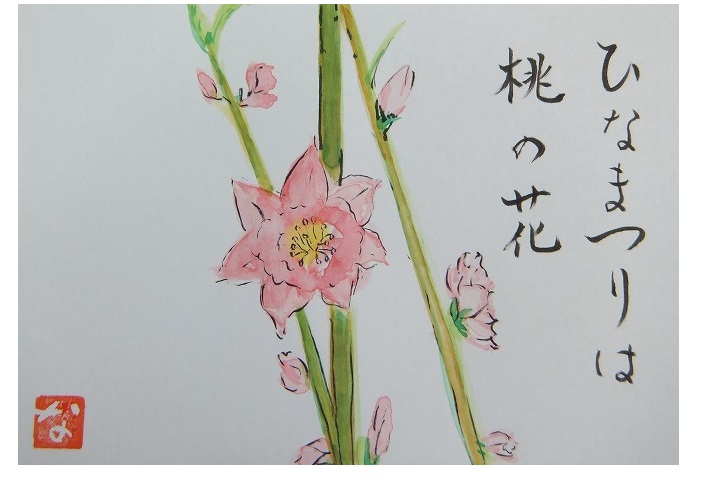 ひなまつりは
桃の花